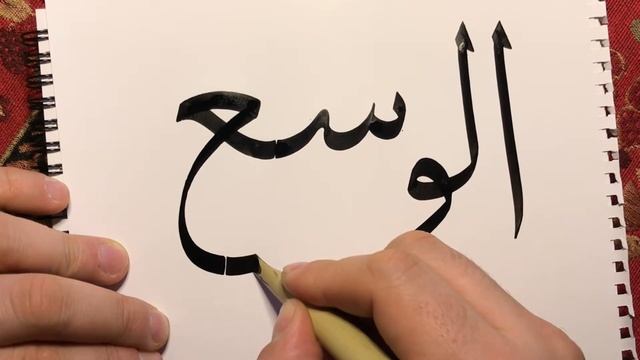 الوسع